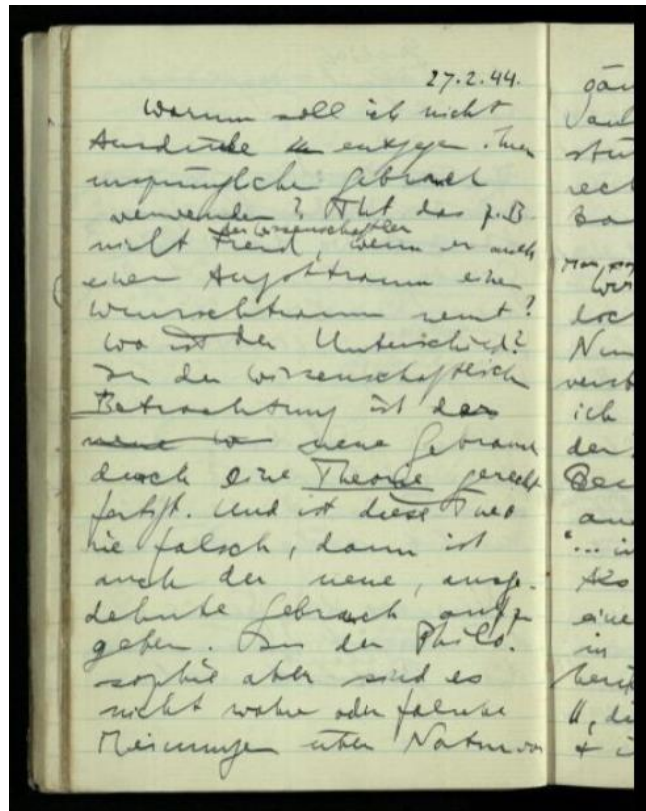 27.2.44.
Warum soll ich nicht
Ausdrücke entgegen ihrem
ursprünglichen Gebrauch
verwenden? Tut das z.B.
der Wissenschaftler
nicht Freud, wenn er auch
einen Angsttraum einen
Wunschtraum nennt?
Wo ist der Unterschied?
In der wissenschaftlichen
Betrachtung ist der
neue Gebrauch
durch eine Theorie gerecht
fertigt. Und ist diese Theo
rie falsch, dann ist
auch der neue, ausge-
dehnte Gebrauch aufzu
geben. In der Philo-
sophie aber sind es
nicht wahre oder falsche
Meinungen über Naturvor
gän
stüt
rech
doch
Nun
verst
ich
der
"... in
eine
in